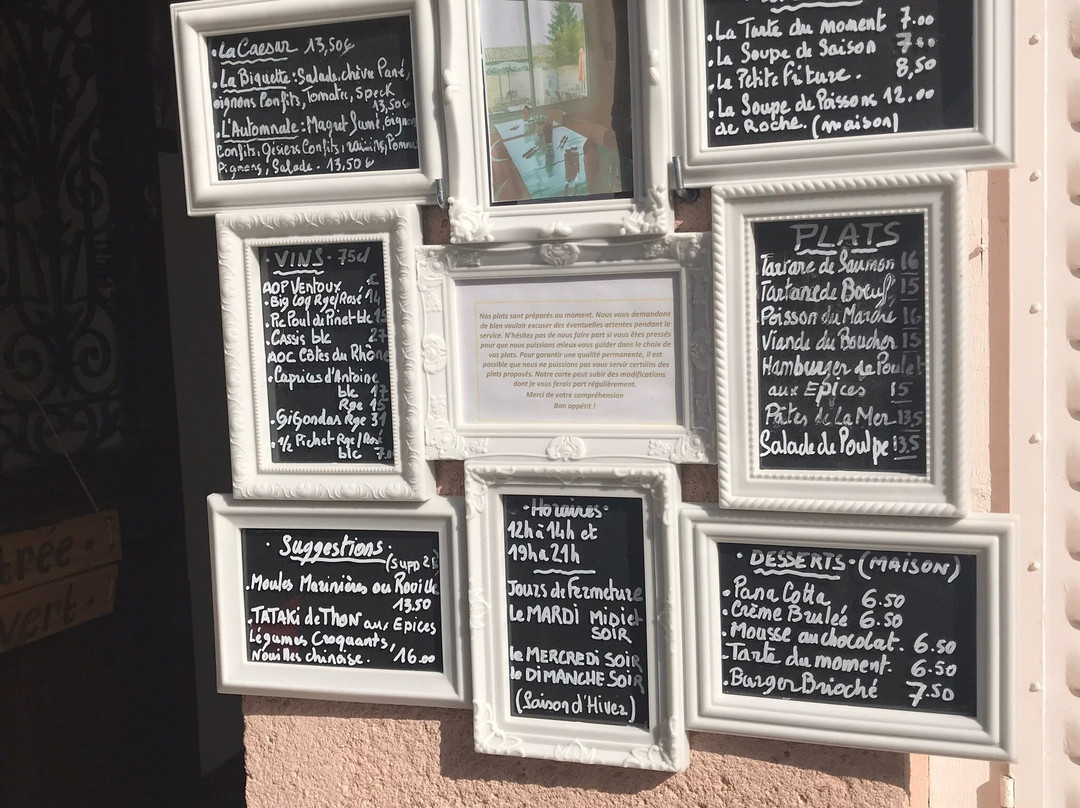 .La Caesar 13,50€
.La Biquette: Salade, chèvre Pané,
oignons Confits, Tomates, Speck
13,50€
.L'Automnale: Magret fumé,
Confits, Gésiers Confits, raisins, Pomme
Pignons, Salade. 13,50€
.La Tarte du moment 7.00
.La Soupe de Saison
.La Petite Friture. 8,50
.La Soupe de Poissons 12.00
de Roche. (maison)
VINS. 75cl
AOP Ventoux €
.Big Coq Rge/Rosé
.Pic Poul de Pinet blc
.Cassis blc
AOC Côtes du Rhône
.Caprices d'Antoine
blc 17
Rge 15
.Gigondas Rge 31
.1/2 Pichet Rge/Rosé
blc
Nos plats sont préparés au moment. Nous vous demandons
de bien vouloir excuser des éventuelles attentes pendant le
service. N'hésitez pas de nous faire part si vous êtes pressés
pour que nous puissions mieux vous guider dans le choix de
vos plats. Pour garantir une qualité permanente, il est
possible que nous ne puissions pas vous servir certains des
plats proposés. Notre carte peut subir des modifications
dont je vous ferais part régulièrement.
Merci de votre compréhension
Bon appétit !
PLATS
Tartare de Saumon 16
Tartare de Boeuf, 15
Poisson du Marché 16
Viande du Boucher 15
Hamburger de Poulet
aux Epices 15
Pâtes de La Mer 13,5
Salade de Poulpe 13,5
.Suggestions.
(supp
.Moules Marinières ou
13.50
.TATAKI de THON aux Epices
Légumes Croquants,
Nouilles chinoise. 16.00
.Horaires.
12h à 14h et
19h à 21h
Jours de Fermeture
le MARDI Midi et
SOIR
le MERCREDI SOIR
le DIMANCHE SOIR
(Saison d'Hiver)
. DESSERTS. (MAISON)
.Pana Cotta 6.50
.Crème Brulée 6.50
.Mousse au chocolat. 6.50
.Tarte du moment. 6.50
.Burger Brioché 7.50
trée
vert